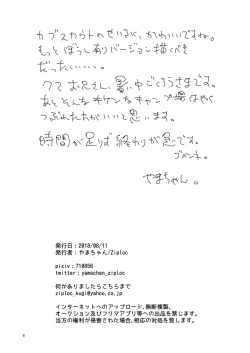 カブスカウトのせいふく、かわいいですね。
もっとぼうし有りバージョン描くべき
だったい……。
クマお兄さん、暑い中ごくろうさまです。
あとそんなキケンなキャンプ場はやく
つぶれた方がいいと思います。
時間が足りず終わりが急です。
ゴメンネ。
やまちゃん。
発行日：2018/08/11
発行者：やまちゃん/Ziploc
pixiv：718856
twitter：yamachan_ziploc
何かありましたらこちらまで
ziploc_kugi@yahoo.co.jp
インターネットへのアップロード、無断複製、
オークション及びフリマアプリ等への出品を禁じます。
当方の権利が侵害された場合、相応の対処を致します。
4